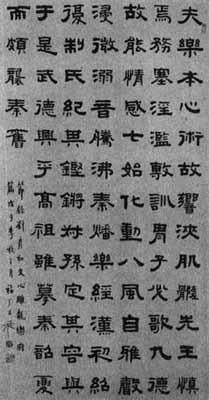 夫樂本心術故響浹肌髓先王慎
焉務塞淫濫敷訓胄子必歌九德
故能情感七始化動八風自雅聲
浸微溺音騰沸秦燔樂經漢初紹
復制氏紀其鏗鏘叔孫定其容與
于是武德興乎高祖雖摹秦韶夏
而頗襲秦舊
節錄劉彥和文心雕龍樂府